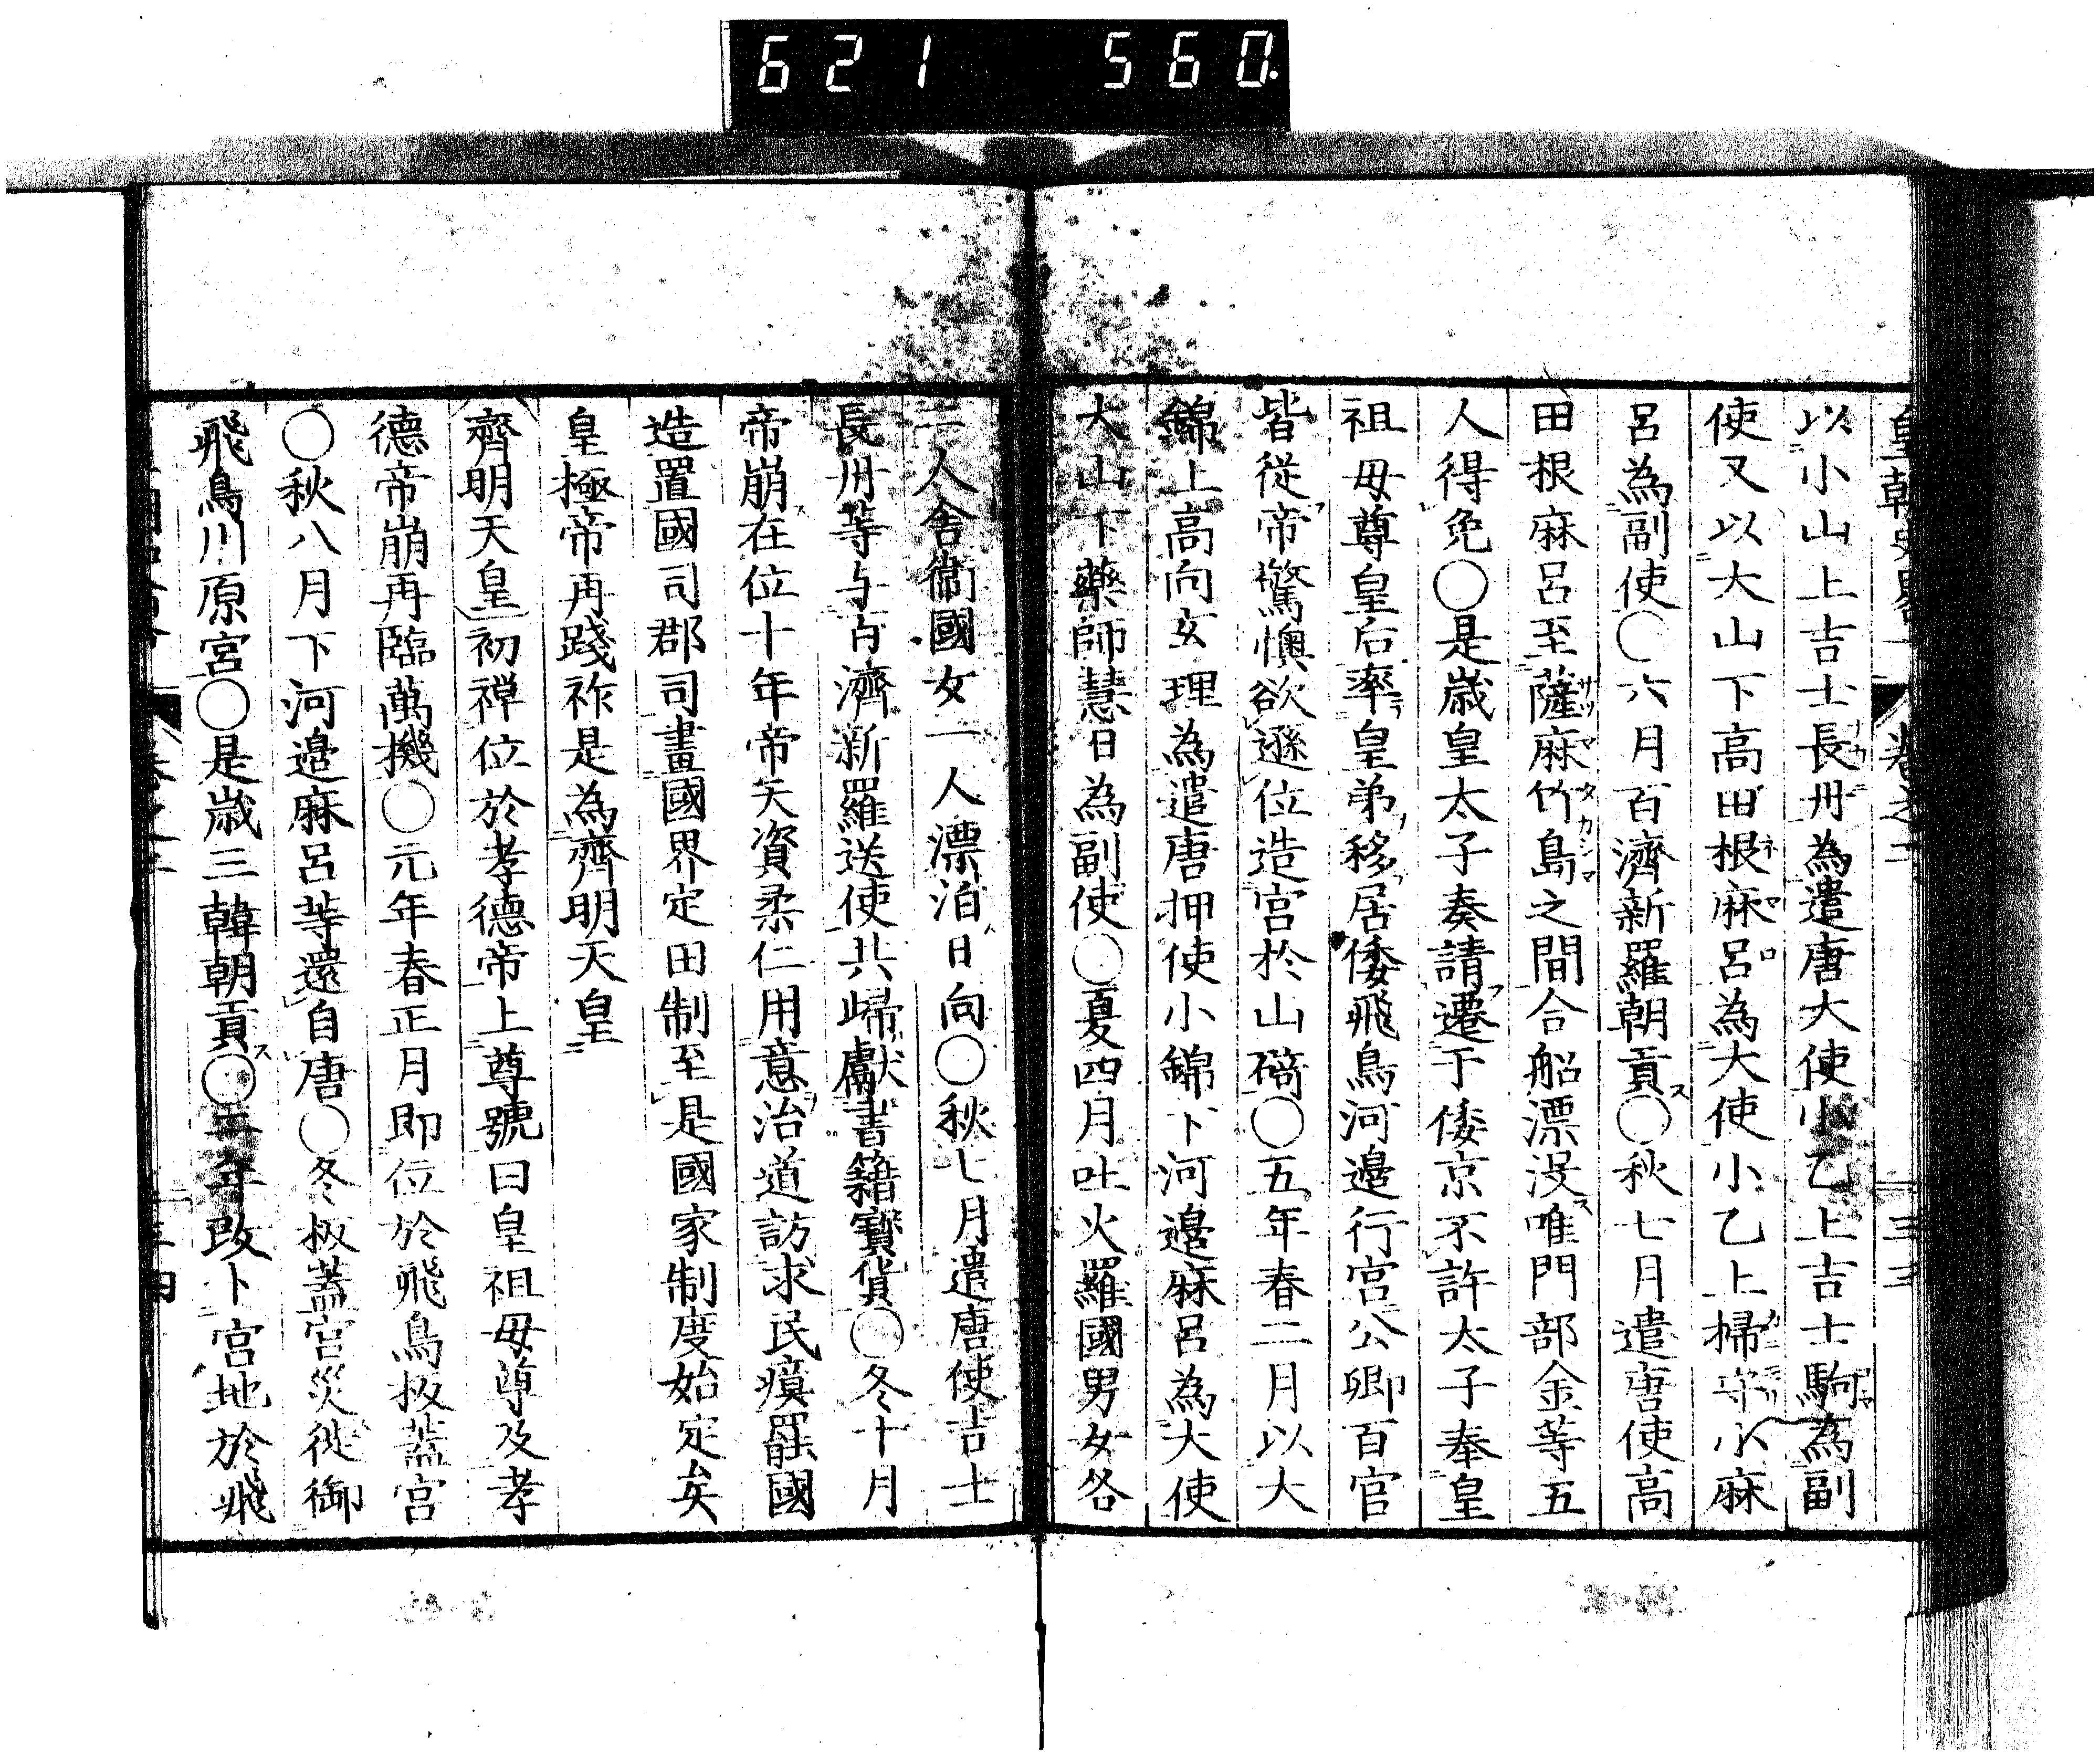 621 560
以小山上吉士長丹為遣唐大使小乙上吉士駒為副
使又以大山下高田根麻呂為大使小乙上掃守小麻
呂為副使○六月百濟新羅朝貢ス○秋七月遣唐使高
田根麻呂至薩麻竹島之間合船漂没ス唯門部金等五
人得免○是歳皇太子奏請遷于倭京不許太子奉皇
祖母尊皇后率皇弟移居倭飛鳥河邉行宮公卿百官
皆從帝驚懊欲遜位造宮於山碕○五年春二月以大
錦上高向玄理為遣唐押使小錦下河邉麻呂為大使
大山下藥師慧日為副使○夏四月吐火羅國男女各
二人舎衛國女一人漂泊日向○秋七月遣唐使吉士
長丹等与百濟新羅送使共歸獻書籍寳貨○冬十月
帝崩ス在位十年帝天資柔仁用意治道訪求民瘼罷國
造置國司郡司畫國界定田制至是國家制度始定矣
皇極帝再踐祚是為齊明天皇
齊明天皇初禅位於孝德帝上尊號曰皇祖母尊及孝
德帝崩再臨萬機○元年春正月即位於飛鳥板葢宮
○秋八月下河邉麻呂等還自唐○冬板葢宮災徙御
飛鳥川原宮○是歳三韓朝貢ス○二年改卜宮地於飛